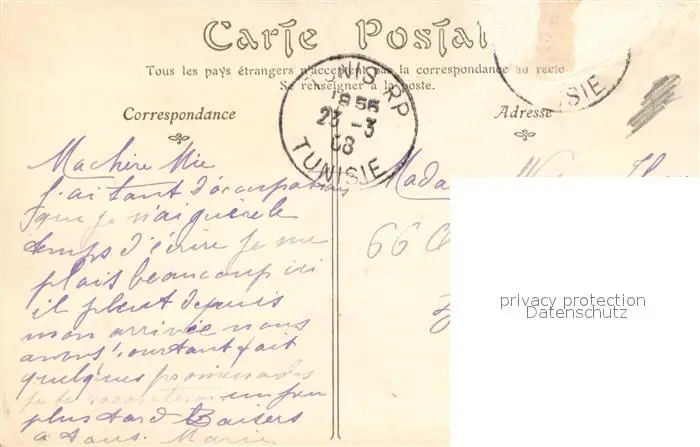 Carte Postal
Tous les pays étrangers n'acceptent pas la correspondance au recto
Se renseigner à la poste.
TUNIS RP
1955
23 -3
08
TUNISIE
SIE
Correspondance
Adresse
Ma chère Mie
J'ai tant d'occupations
que je n'ai guère le
temps d'écrire Je me
plais beaucoup ici
il pleut depuis
mon arrivée nous
avons pourtant fait
quelques promenades
je te raconterai un peu
plus tard Baisers
a tous. Marie
Mada
66
privacy protection
Datenschutz